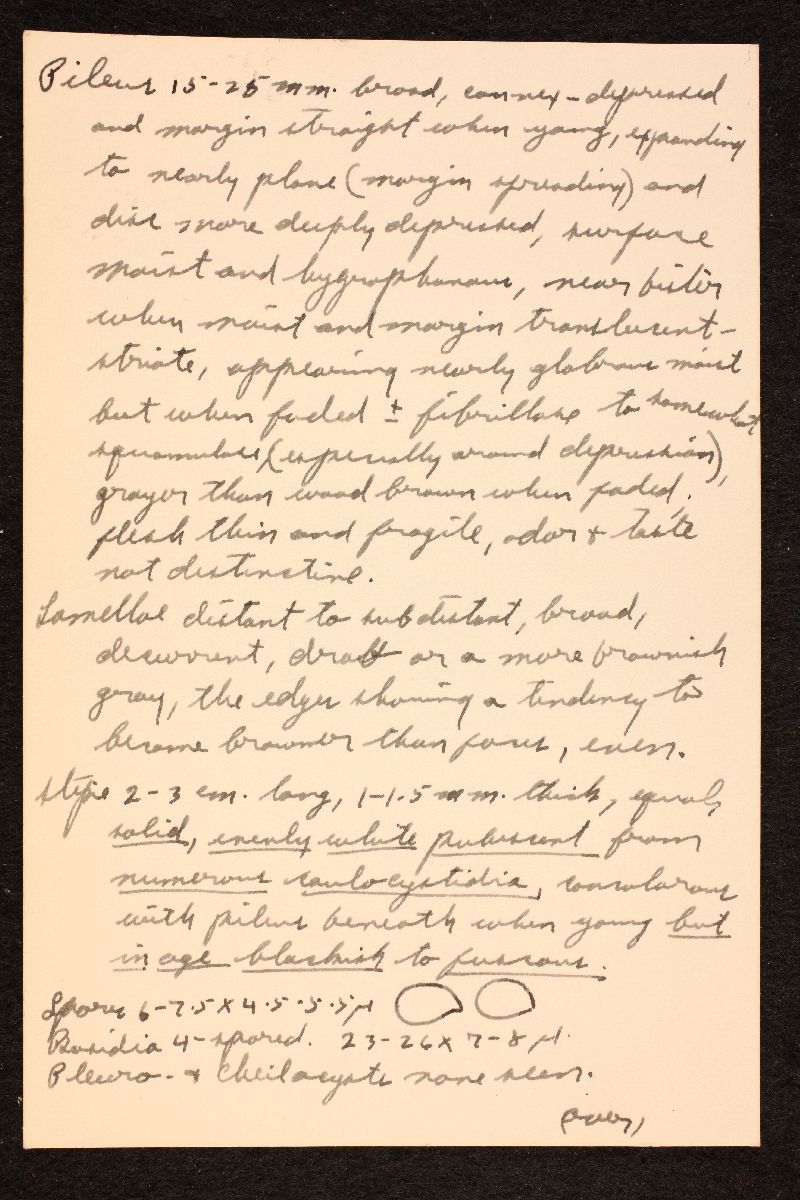 Pileus 15-25 mm. broad, convex-depressed
and margin straight when young, expanding
to nearly plane (margin spreading) and
disc more deeply depressed, surface
moist and hygrophanous, near bister
when moist and margin translucent-
striate, appearing nearly glabrous moist
but when faded ± fibrillose to somewhat
squamulose (especially around depression),
grayer than wood brown when faded;
flesh thin and fragile, odor & taste
not distinctive.
Lamellae distant to subdistant, broad,
decurrent, drab or a more brownish
gray, the edges showing a tendency to
become browner than faces, even.
Stipe 2-3 cm. long, 1-1.5 mm. thick, equal,
solid, evenly white pubescent from
numerous caulocystidia, concolorous
with pileus beneath when young but
in age blackish to fuscous.
Spores 6-7.5 X 4.5-5.5 μ
Basidia 4-spored. 23-26 x 7-8 μ.
Pleuro- & cheilocysts none seen.
(over)